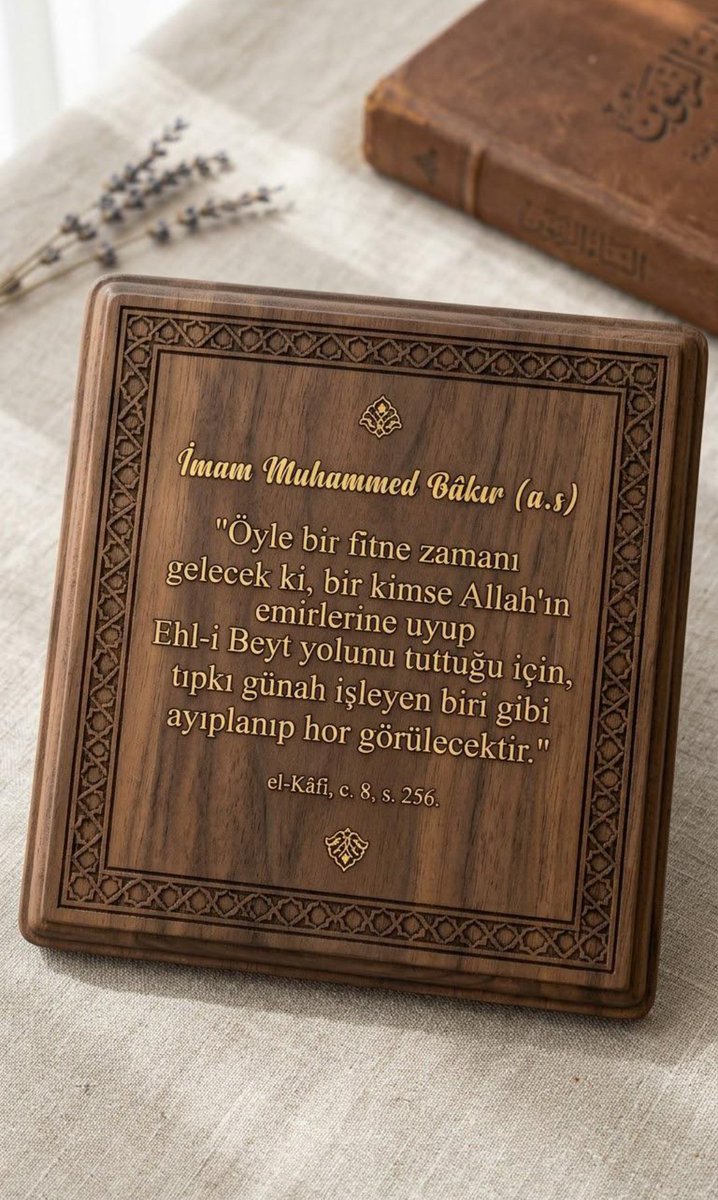 İmam Muhammed Bâkır (a.s)
"Öyle bir fitne zamanı
gelecek ki, bir kimse Allah'ın
emirlerine uyup
Ehl-i Beyt yolunu tuttuğu için,
tıpkı günah işleyen biri gibi
ayıplanıp hor görülecektir."
el-Kâfi, c. 8, s. 256.